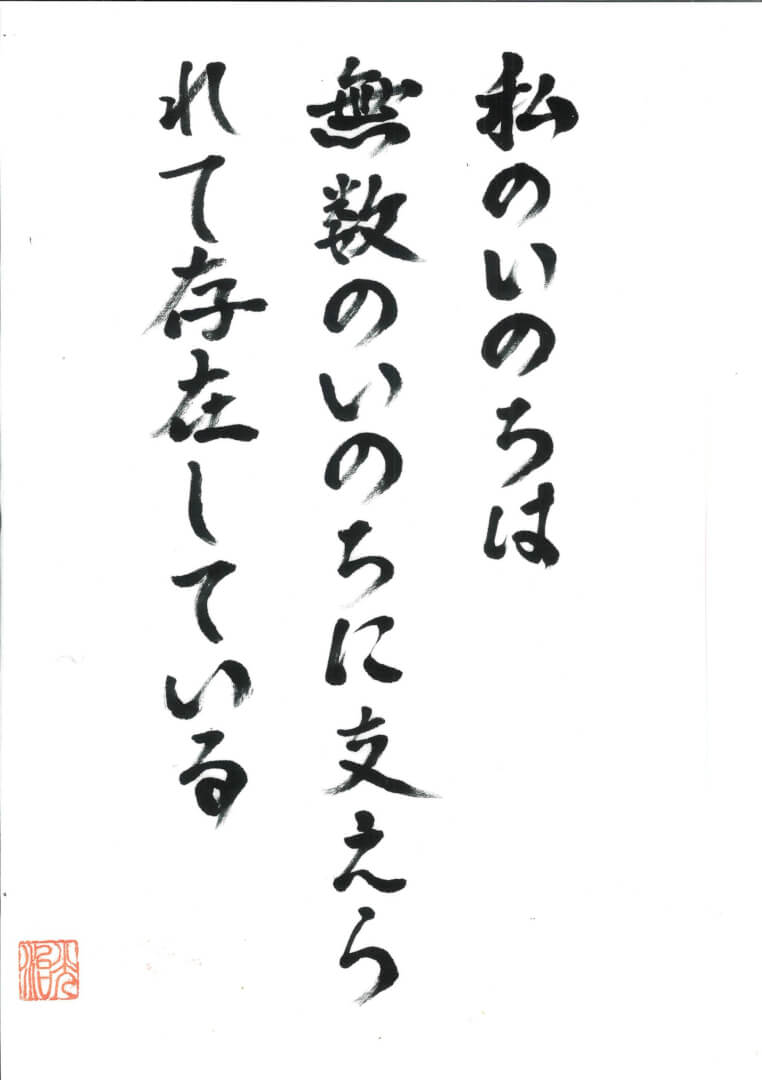 私のいのちは
無数のいのちに支えら
れて存在している